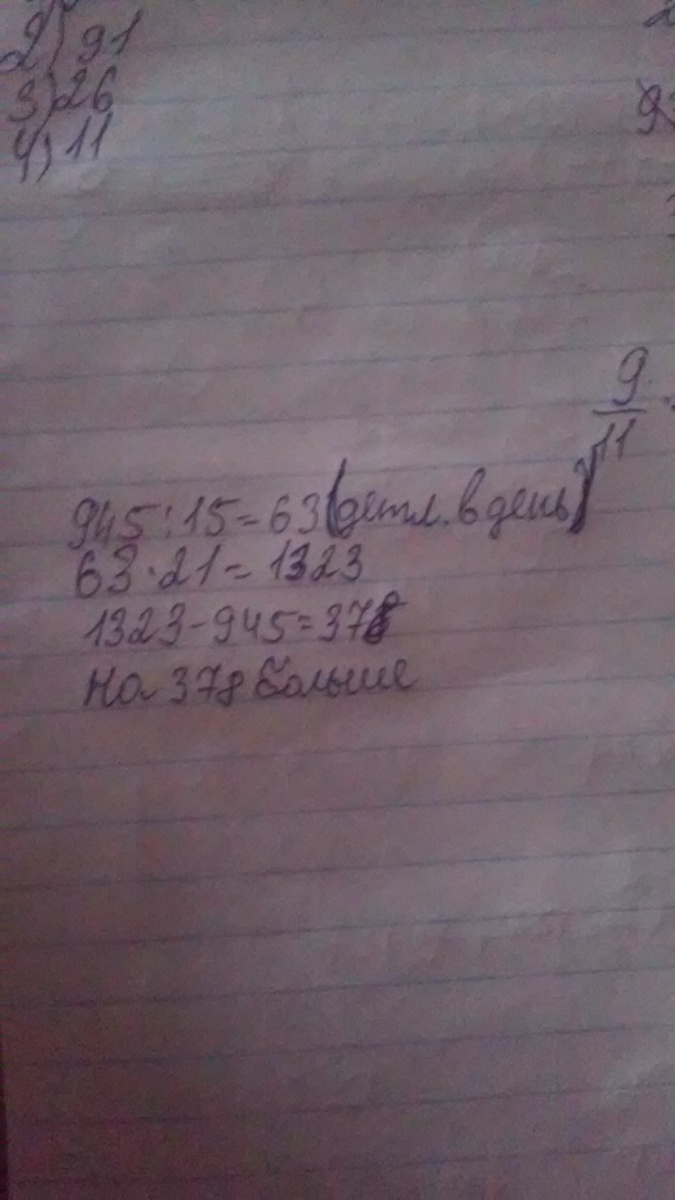 2) 91
3) 26
4) 11
9
11
945:15=63(детл. в день)
63·21=1323
1323-945=378
на 378 больше